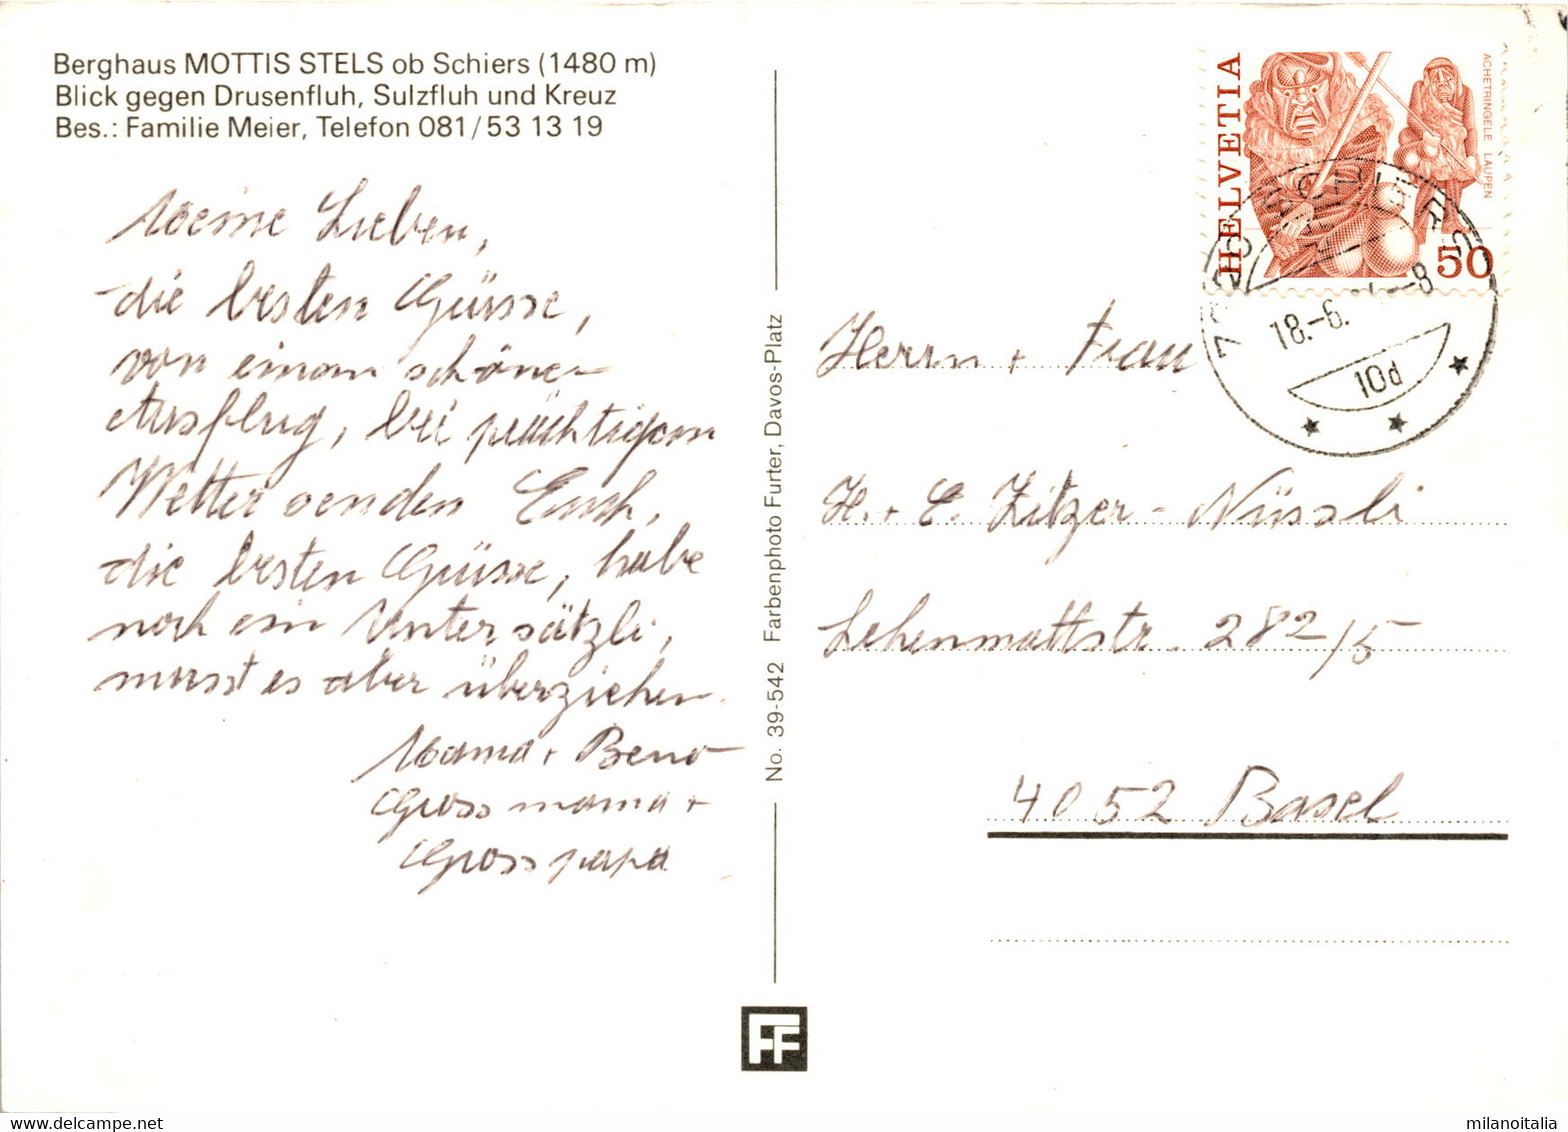 Berghaus MOTTIS STELS ob Schiers (1480 m)
Blick gegen Drusenfluh, Sulzfluh und Kreuz
Bes.: Familie Meier, Telefon 081/53 13 19
Meine Lieben,
die besten Grüsse,
von einem schönen
Ausflug, bei prächtigem
Wetter senden Euch,
die besten Grüsse, habe
noch ein Untersätzli,
musst es aber überziehen.
Mama + Beno
Grossmama +
Grosspapa
No. 39-542 Farbenphoto Furter, Davos-Platz
FF
HELVETIA
ACHETRINGELE LAUPEN
50
SCHIERS
18.-6.
-8
10d
Herrn + Frau
H. + E. Zitzer - Nüssli
Lehenmattstr. 282/5
4052 Basel
milanoitalia